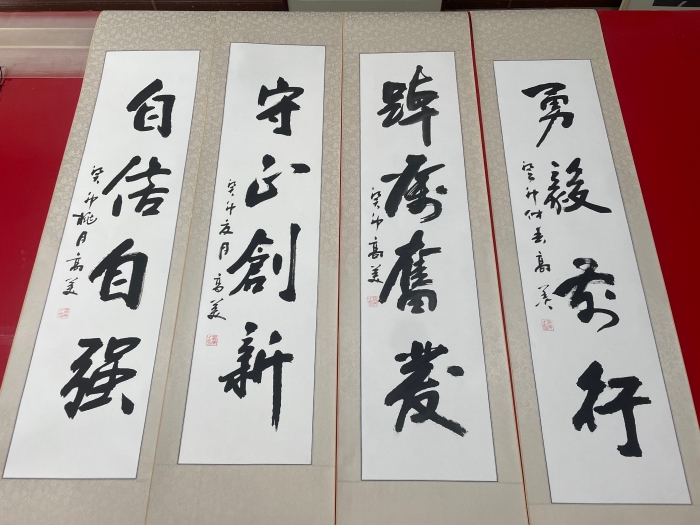 自信自强
癸卯桃月 高美
守正創新
癸卯夏月 高美
踔厲奮發
癸卯 高美
勇毅前行
癸卯仲春 高美